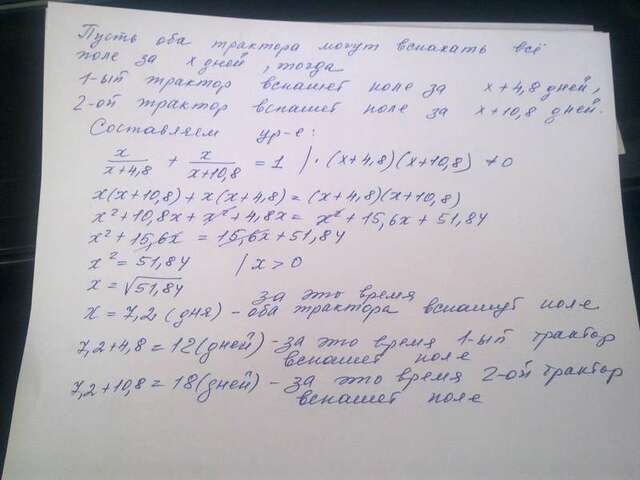 Пусть оба трактора могут вспахать всё
поле за x дней, тогда
1-ый трактор вспашет поле за x+4,8 дней,
2-ой трактор вспашет поле за x+10,8 дней.
Составляем ур-е:
x/(x+4,8) + x/(x+10,8) = 1 | · (x+4,8)(x+10,8) ≠ 0
x(x+10,8)+x(x+4,8)=(x+4,8)(x+10,8)
x²+10,8x+x²+4,8x= x²+15,6x+51,84
x²+15,6x = 15,6x+51,84
x²=51,84 | x>0
x=√51,84
x=7,2 (дня) - за это время оба трактора вспашут поле
7,2+4,8=12(дней) - за это время 1-ый трактор
вспашет поле
7,2+10,8=18(дней) - за это время 2-ой трактор
вспашет поле